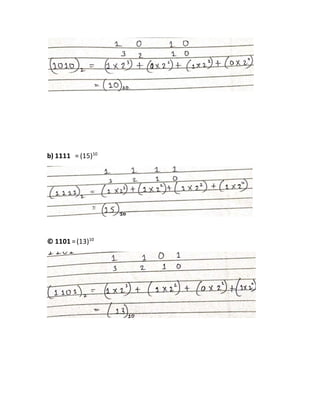 1 0 1 0
3 2 1 0
(1010)₂ = (1×2³) + (0×2²) + (1×2¹) + (0×2⁰)
= (10)₁₀
b) 1111 = (15)¹⁰
1 1 1 1
3 2 1 0
(1111)₂ = (1×2³) + (1×2²) + (1×2¹) + (1×2⁰)
= (15)₁₀
© 1101 = (13)¹⁰
1 1 0 1
3 2 1 0
(1101)₂ = (1×2³) + (1×2²) + (0×2¹) + (1×2⁰)
= (13)₁₀